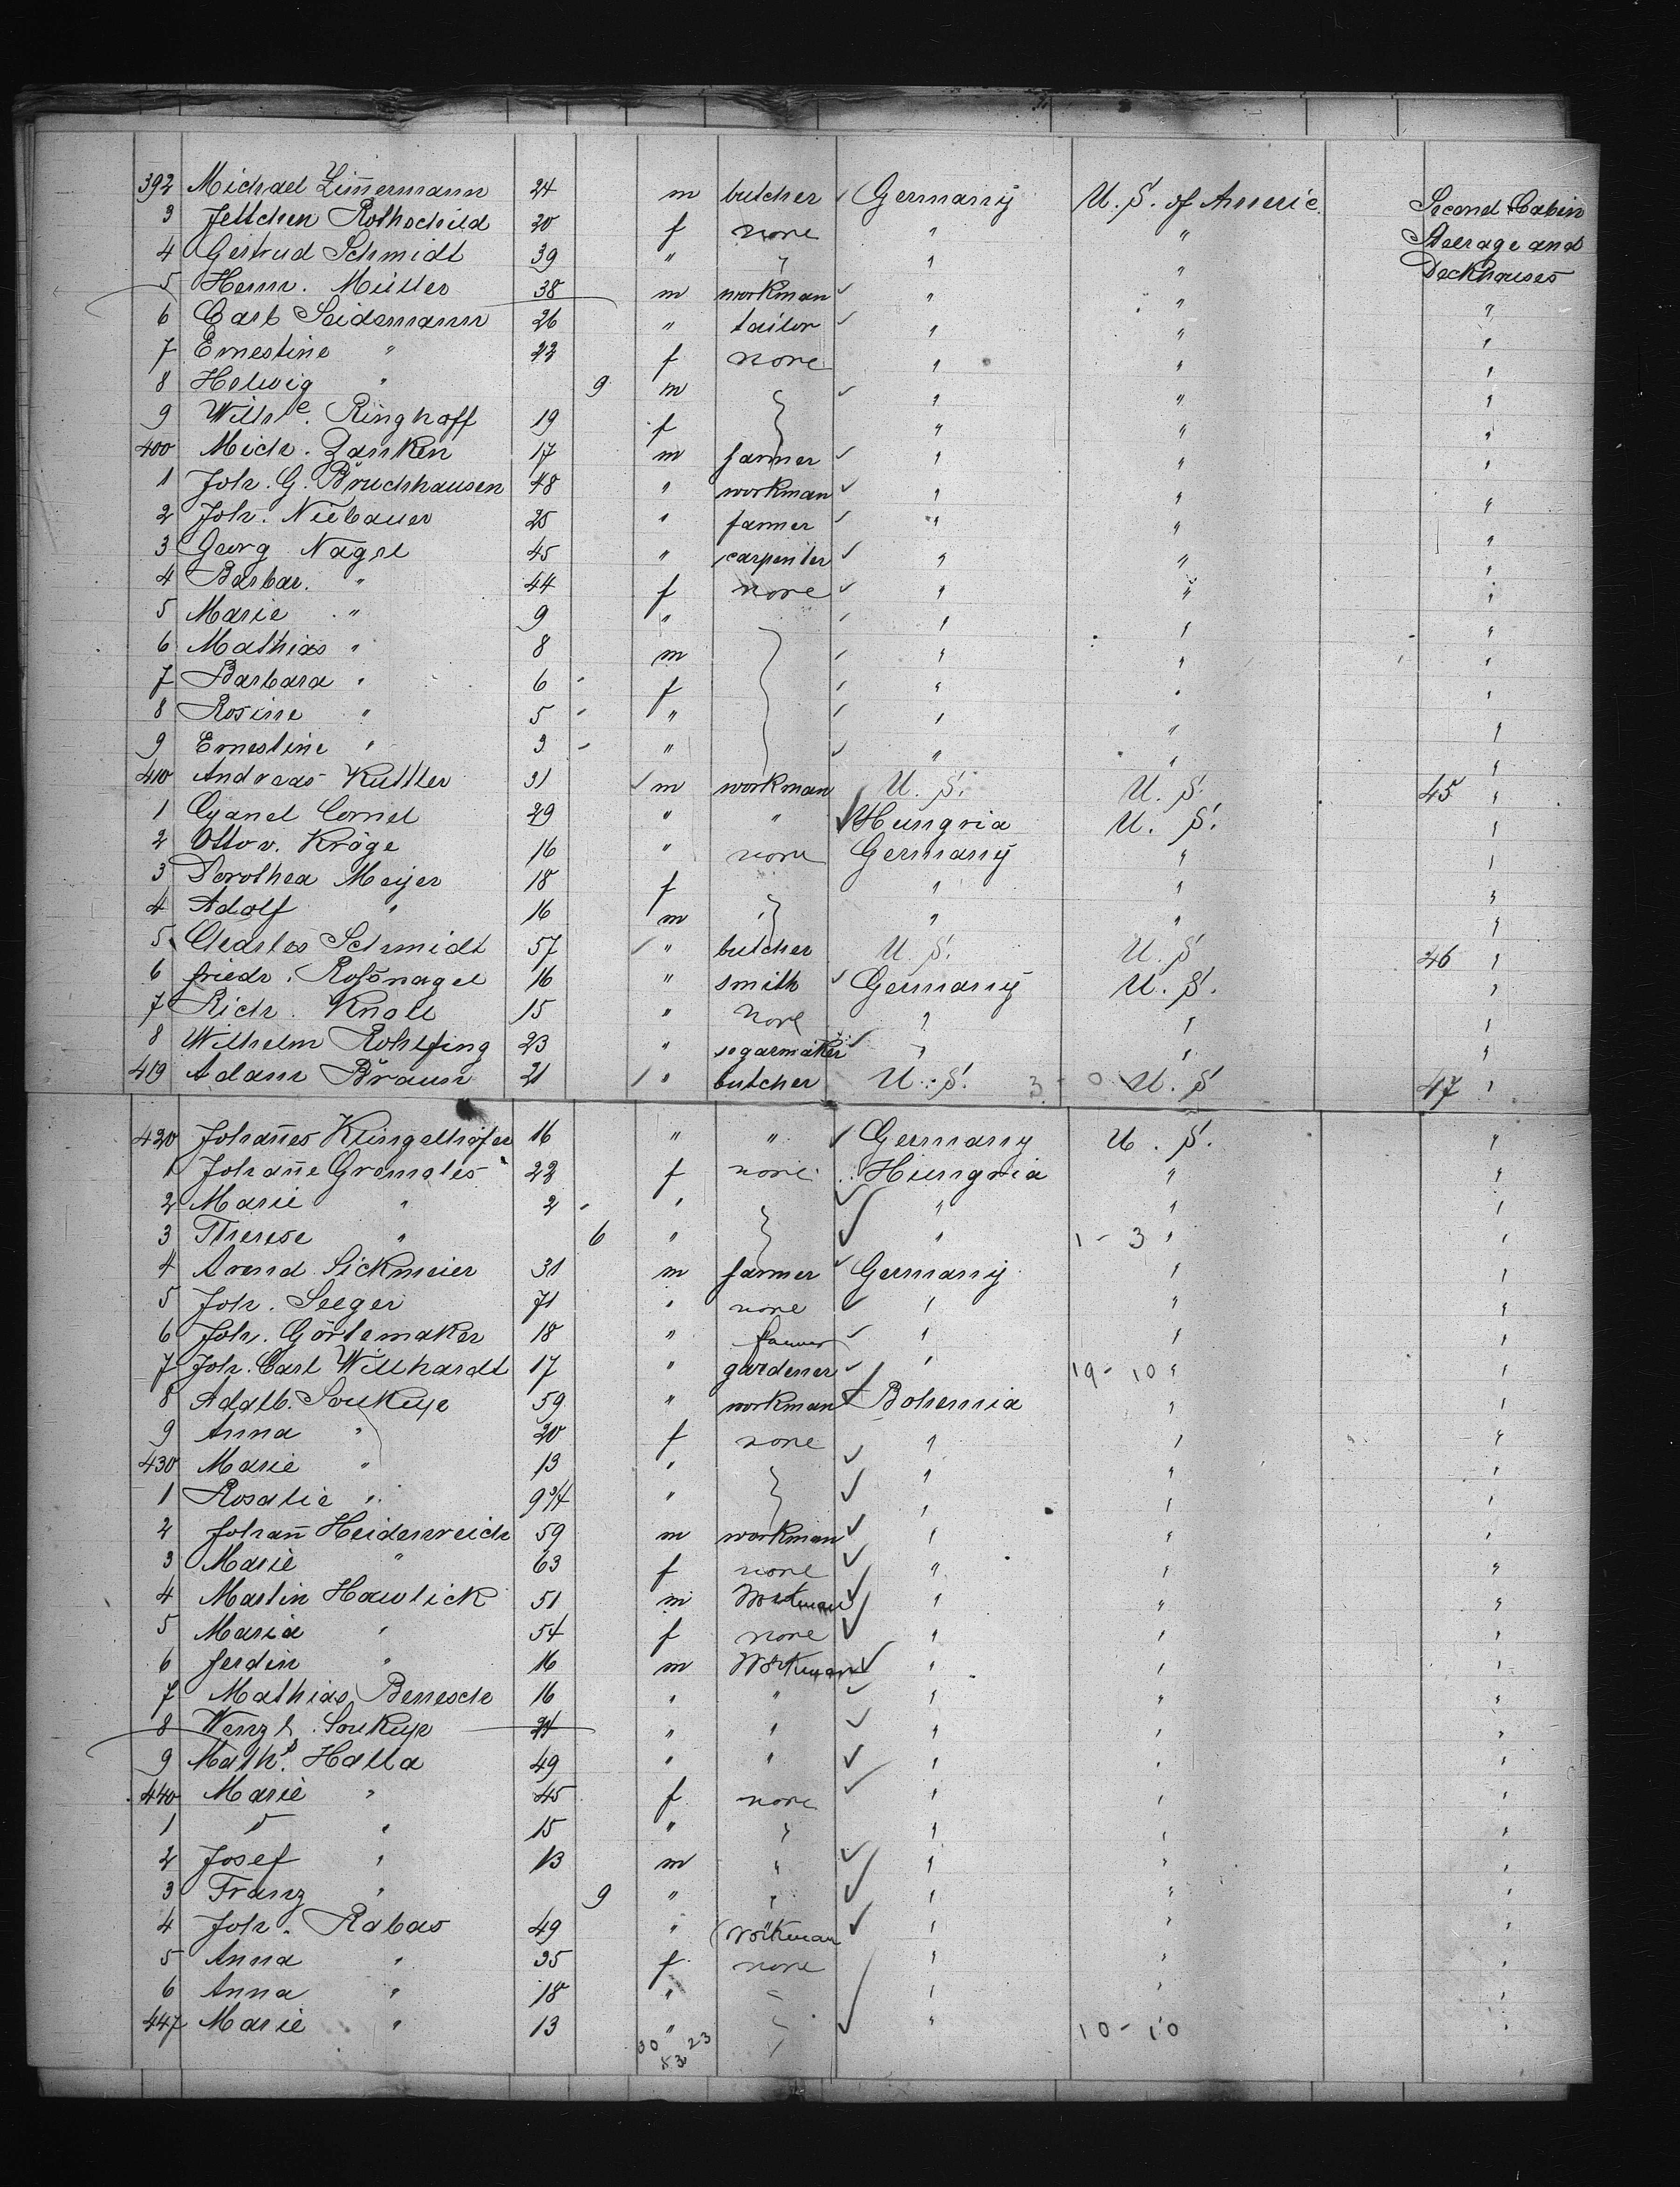 392 Michael Zim̄ermann 24 m butcher Germany U. S. of Americ. Second Cabin
3 Jettchen Rothschild 20 f none " " Steerage and
4 Gertrud Schmidt 39 " " " " Deckhouses
5 Herm. Müller 38 m workman " " "
6 Carl Seidemann 26 " tailor " " "
7 Ernestine " 22 f none " " "
8 Helwig " 9 m " " "
9 Wilhe. Ringhoff 19 f " " "
400 Mich. Zanken 17 m farmer " " "
1 Joh. G. Bruchhausen 48 " workman " " "
2 Joh. Niebauer 25 " farmer " " "
3 Georg Nagel 45 " carpenter " " "
4 Barbar. " 44 f none " " "
5 Marie " 9 " " " "
6 Mathias " 8 m " " "
7 Barbara " 6 f " " "
8 Rosine " 5 " " " "
9 Ernestine " 3 " " " "
410 Andreas Kuttler 31 m workman U. S. U. S. 45 "
1 Cornel 29 " " Hungria U. S. "
2 Otto v. Kröge 16 " none Germany " "
3 Dorothea Meijer 18 f " " "
4 Adolf " 16 m " " " "
5 Charles Schmidt 57 " butcher U. S. U. S 46 "
6 Friedr. Roßnagel 16 " smith Germany U. S. "
7 Rich. Knoll 15 " none " " "
8 Wilhelm Rohlfing 23 " segarmaker " " "
419 Adam Braun 21 " butcher U. S. 3 - 0 U. S 47 "
420 Johan̄es Klingelhöfer 16 " " Germany U. S. "
1 Johan̄e Gromales 22 f none Hungria " "
2 Marie " 2 " " " "
3 Therese " 6 " " 1 - 3 " "
4 Arend Sickmeier 31 m farmer Germany " "
5 Joh. Seeger 71 " none " " "
6 Joh. Görtemaker 18 " farmer " " "
7 Joh. Carl Willhardt 17 " gardener " 19 - 10 " "
8 Adalb. Soukup 59 " workman Bohemia " "
9 Anna " 20 f none " " "
430 Marie " 13 " " " "
1 Rosalie " 9 3/4 " " " "
2 Johan̄ Heidenreich 59 m workman " " "
3 Marie " 63 f none " " "
4 Martin Hawlick 51 m Workman " " "
5 Maria " 54 f none " " "
6 Ferdin " 16 m Workman " " "
7 Mathias Benesch 16 " " " " "
8 Wenzl. Soukup 24 " " " " "
9 Maths. Halla 49 " " " " "
440 Marie " 45 f none " " "
1 " 15 " " " " "
2 Josef " 13 m " " " "
3 Franz " 9 " " " " "
4 Joh. Rabas 49 " Workman " " "
5 Anna " 35 f none " " "
6 Anna " 18 " " " " "
447 Marie " 13 " " " 10 - 10 "
30 23
53